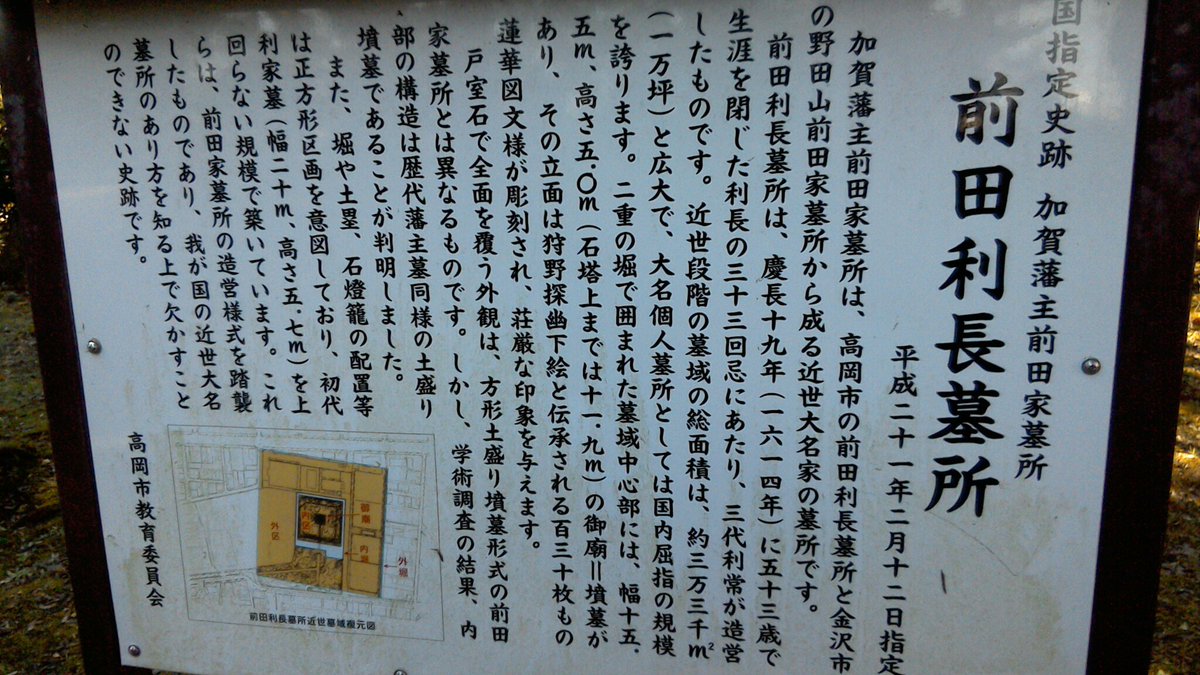 国指定史跡 加賀藩主前田家墓所
前田利長墓所
平成二十一年二月十二日指定
加賀藩主前田家墓所は、高岡市の前田利長墓所と金沢市
の野田山前田家墓所から成る近世大名家の墓所です。
前田利長墓所は、慶長十九年(一六一四年)に五十三歳で
生涯を閉じた利長の三十三回忌にあたり、三代利常が造営
したものです。近世段階の墓域の総面積は、約三万三千㎡
(一万坪)と広大で、大名個人墓所としては国内屈指の規模
を誇ります。二重の堀で囲まれた墓域中心部には、幅十五.
五m、高さ五.〇m(石塔上までは十一.九m)の御廟=墳墓が
あり、その立面は狩野探幽下絵と伝承される百三十枚もの
蓮華図文様が彫刻され、荘厳な印象を与えます。
戸室石で全面を覆う外観は、方形土盛り墳墓形式の前田
家墓所とは異なるものです。しかし、学術調査の結果、内
部の構造は歴代藩主墓同様の土盛り
墳墓であることが判明しました。
また、堀や土塁、石燈籠の配置等
は正方形区画を意図しており、初代
利家墓(幅二十m、高さ五.七m)を上
回らない規模で築いています。これ
らは、前田家墓所の造営様式を踏襲
したものであり、我が国の近世大名
墓所のあり方を知る上で欠かすこと
のできない史跡です。
高岡市教育委員会
御廟
内堀
外堀
外区
前田利長墓所近世墓域復元図